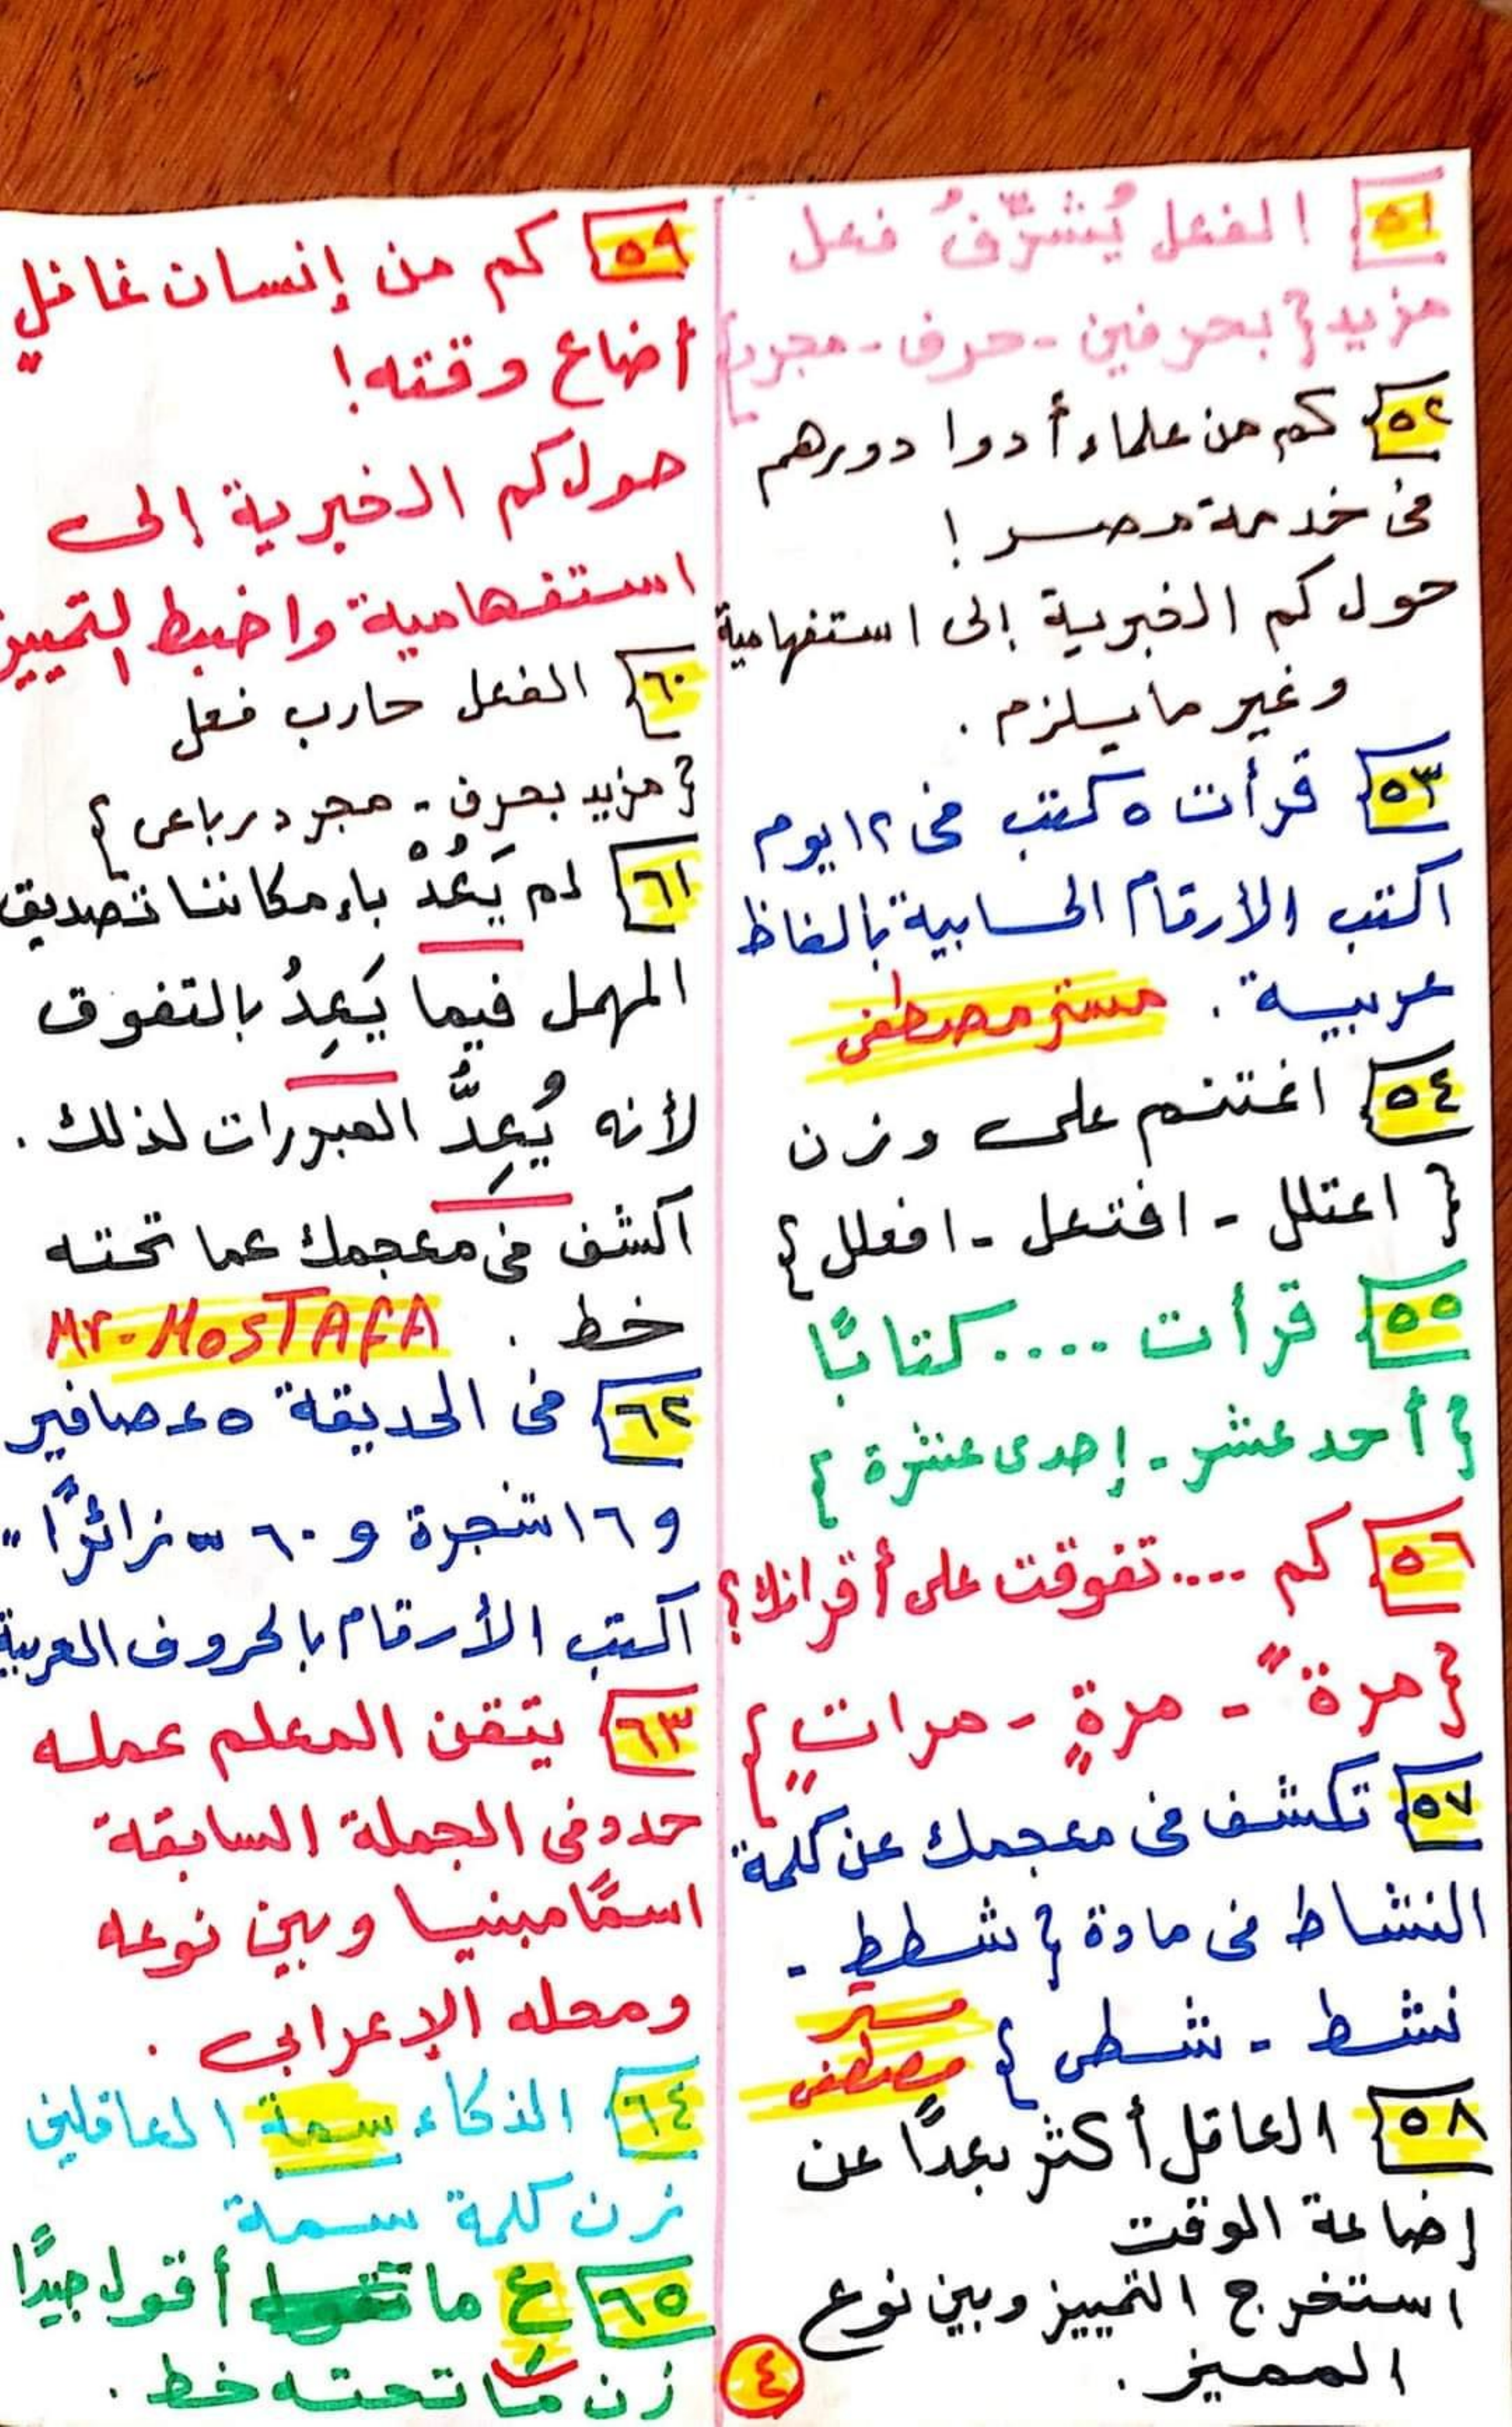 ٥١ الفعل يُشرِّفُ فعل
مزيد {بحرفين - حرف - مجرد}
٥٢ كم من علماء أدوا دورهم
فى خدمة مصر !
حول كم الخبرية إلى استفهامية
وغير ما يلزم .
٥٣ قرأت ٥ كتب فى ١٢ يوم
اكتب الأرقام الحسابية بألفاظ
عربية . مستر مصطفى
٥٤ اغتنم على وزن
{ اعتلل - افتعل - افعلل }
٥٥ قرأت .... كتابًا
{ أحد عشر - إحدى عشرة }
٥٦ كم .... تفوقت على أقرانك؟
{مرةً - مرةٍ - مراتٍ}
٥٧ تكشف فى معجمك عن كلمة
النشاط فى مادة { شطط -
نشط - شطى } مستر
مصطفى
٥٨ العاقل أكثر بعدًا عن
إضاعة الوقت
استخرج التمييز وبين نوع
المميز .
٤
٥٩ كم من إنسان غافلٍ
أضاع وقته !
حول كم الخبرية إلى
استفهامية واضبط التمييز
٦٠ الفعل حارب فعل
{ مزيد بحرف - مجرد رباعى }
٦١ لم يَعُدْ بإمكاننا تصديق
المهمل فيما يَعِدُ بالتفوق
لأنه يُعِدُّ المبررات لذلك .
اكشف فى معجمك عما تحته
خط . Mr-MOSTAFA
٦٢ فى الحديقة ٥ عصافير
و ١٦ شجرة و ٦٠ زائرًا "
اكتب الأرقام بالحروف العربية
٦٣ يتقن المعلم عمله
حدد فى الجملة السابقة
اسمًا مبنيا وبين نوعه
ومحله الإعرابى .
٦٤ الذكاء سمة العاقلين
زن كلمة سمة
٦٥ عِ ما أقول جيدًا
زن ما تحته خط .